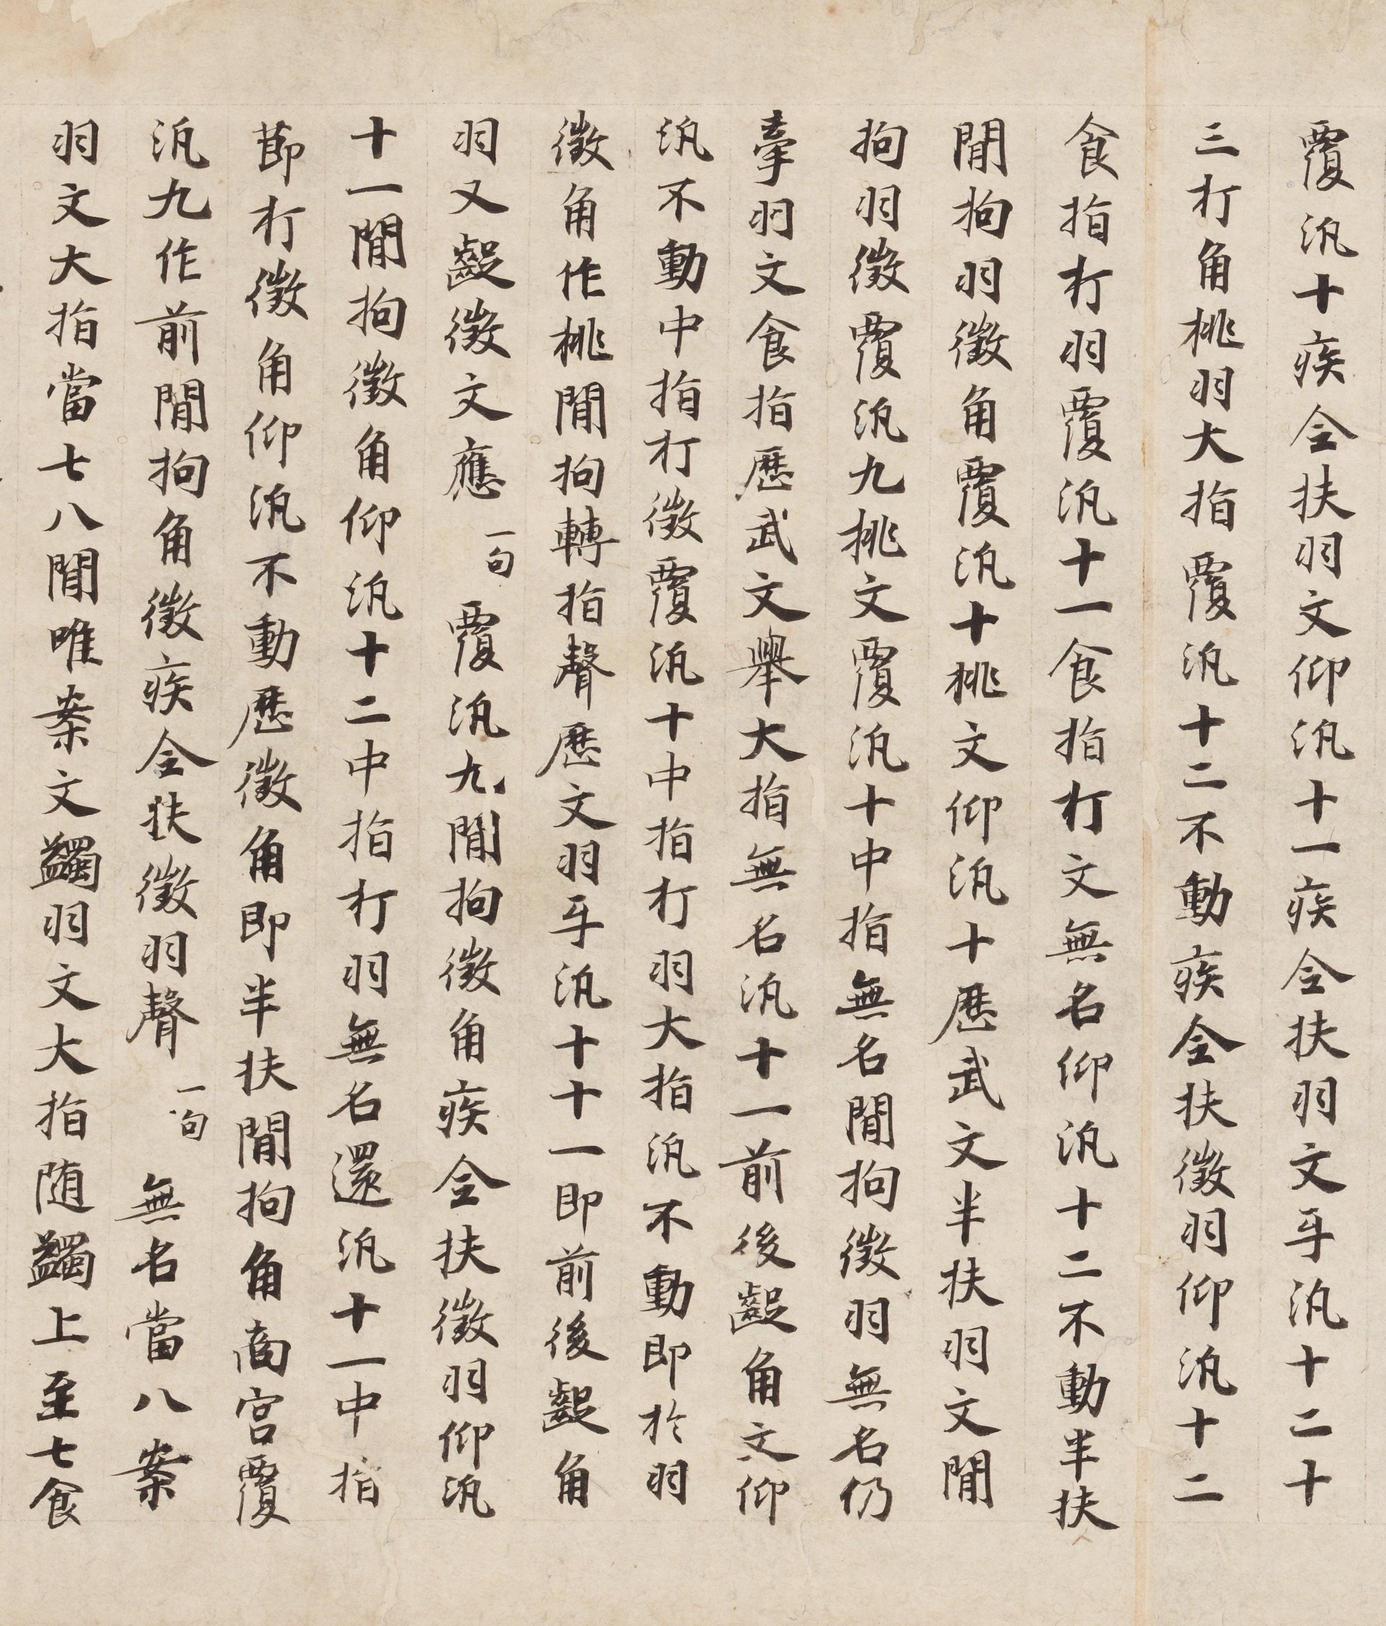 覆汎十疾全扶羽文仰汎十一疾全扶羽文牙汎十二十
三打角桃羽大指覆汎十二不動疾全扶徵羽仰汎十二
食指打羽覆汎十一食指打文無名仰汎十二不動半扶
間拘羽徵角覆汎十桃文仰汎十歷武文半扶羽文間
拘羽徵覆汎九桃文覆汎十中指無名間拘徵羽無名仍
牽羽文食指歷武文舉大指無名汎十一前後齪角文仰
汎不動中指打徵覆汎十中指打羽大指汎不動即於羽
徵角作桃間拘轉指聲歷文羽牙汎十十一即前後齪角
羽又齪徵文應 一句 覆汎九間拘徵角疾全扶徵羽仰汎
十一間拘徵角仰汎十二中指打羽無名還汎十一中指
節打徵角仰汎不動歷徵角即半扶間拘角商宮覆
汎九作前間拘角徵疾全扶徵羽聲 一句 無名當八案
羽文大指當七八間唯案文蠲羽文大指随蠲上至七食